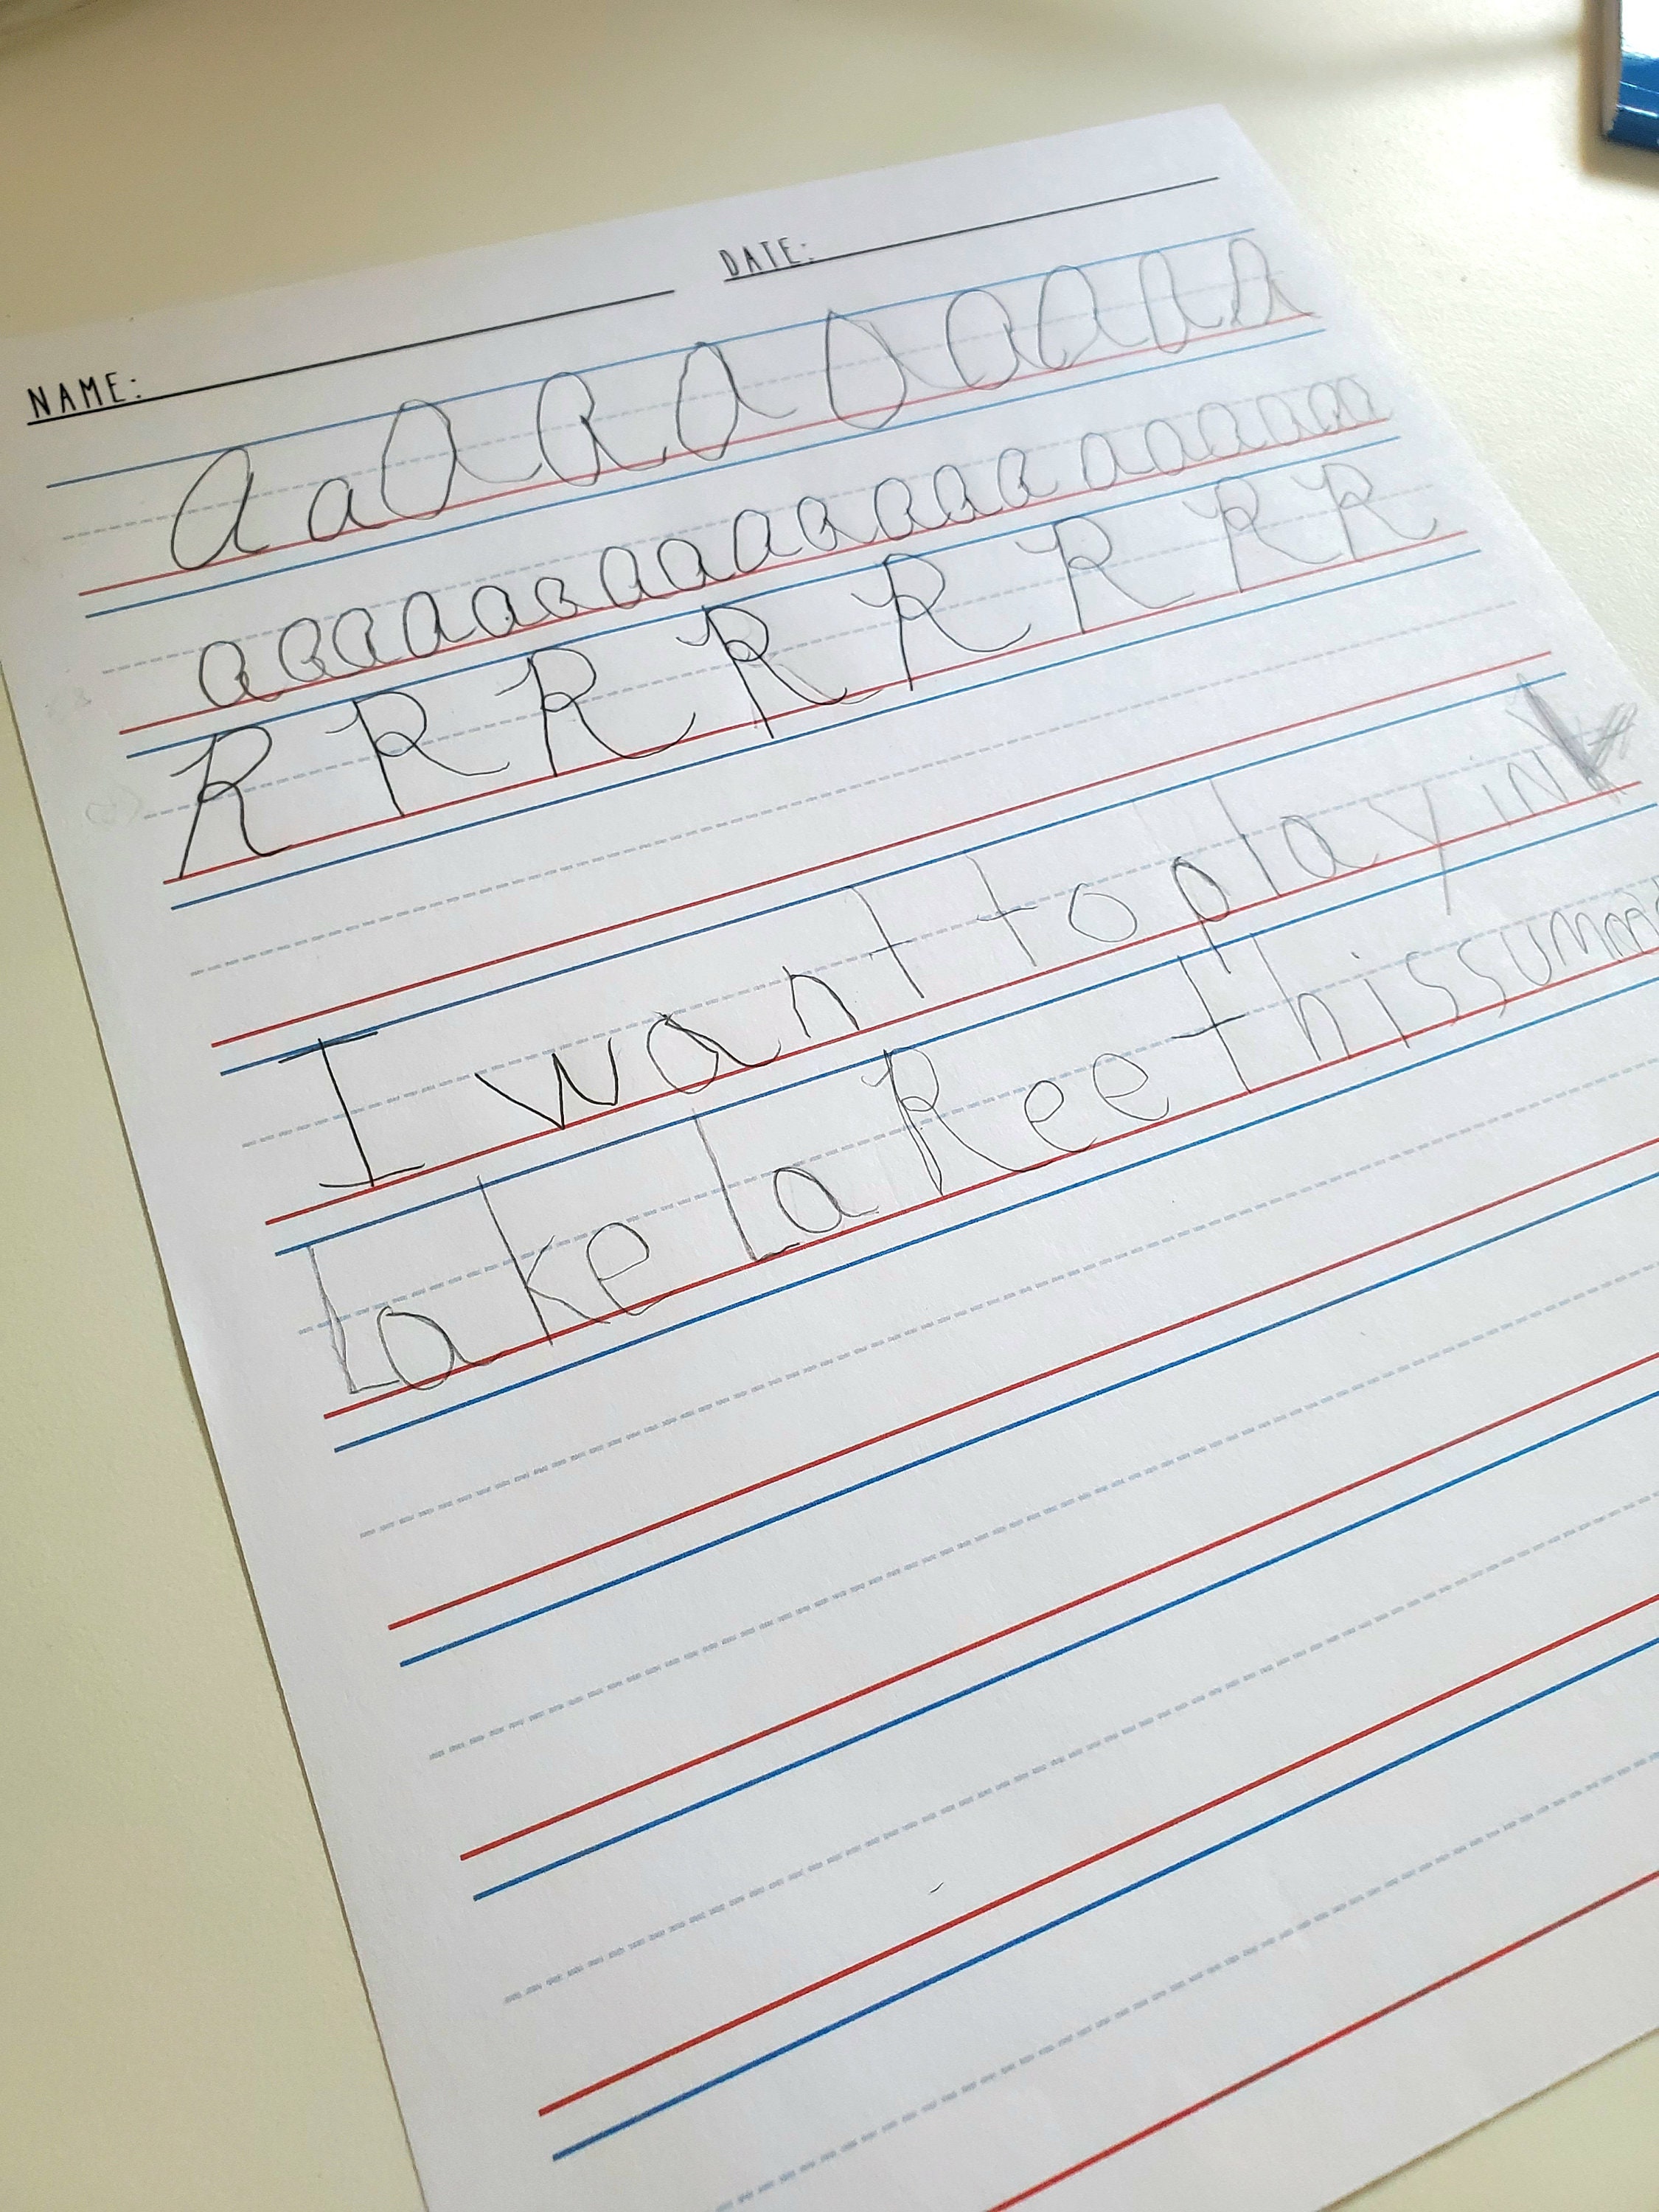 NAME: DATE:
A a A A A A A A A A
a a a a a a a a a a a a a a a a a a a
R R R R R R R R
I want to play in
Lake La Ree this